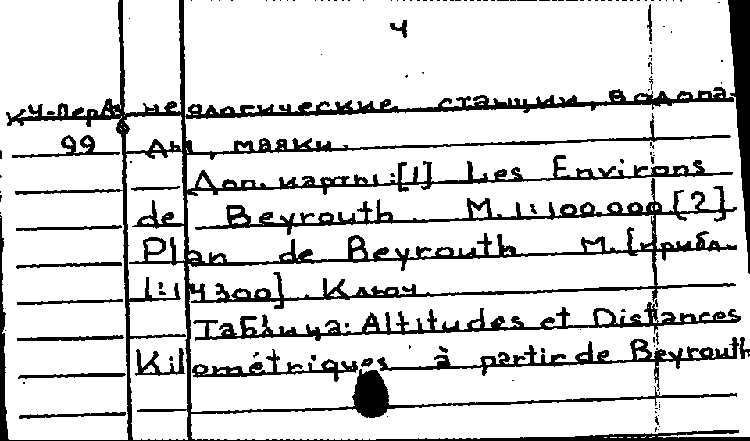 4
не ологические станции, водопа-
99 ды, маяки.
Доп. карты:[1] Les Environs
de Beyrouth M. 1:100.000 [2]
Plan de Beyrouth М. [прибл.
1:14300]. Ключ.
Таблица: Altitudes et Distances
Kilométriques à partir de Beyrouth